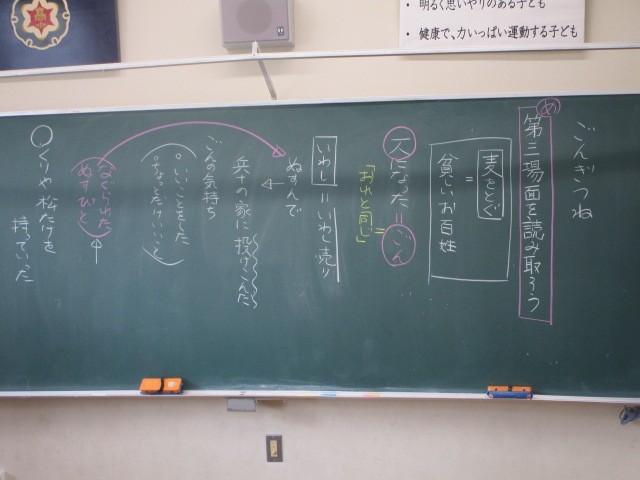 ・明るく思いやりのある子ども
・健康で、力いっぱい運動する子ども
ごんぎつね
め
第三場面を読み取ろう
麦をとぐ
=
貧しいお百姓
一人になった=ごん
「おれと同じ」=
いわし=いわし売り
ぬすんで
←
兵十の家に投げこんだ
ごんの気持ち
いいことをした
なぐられた
ぬすびと
↑
○くりや松たけを
持っていった